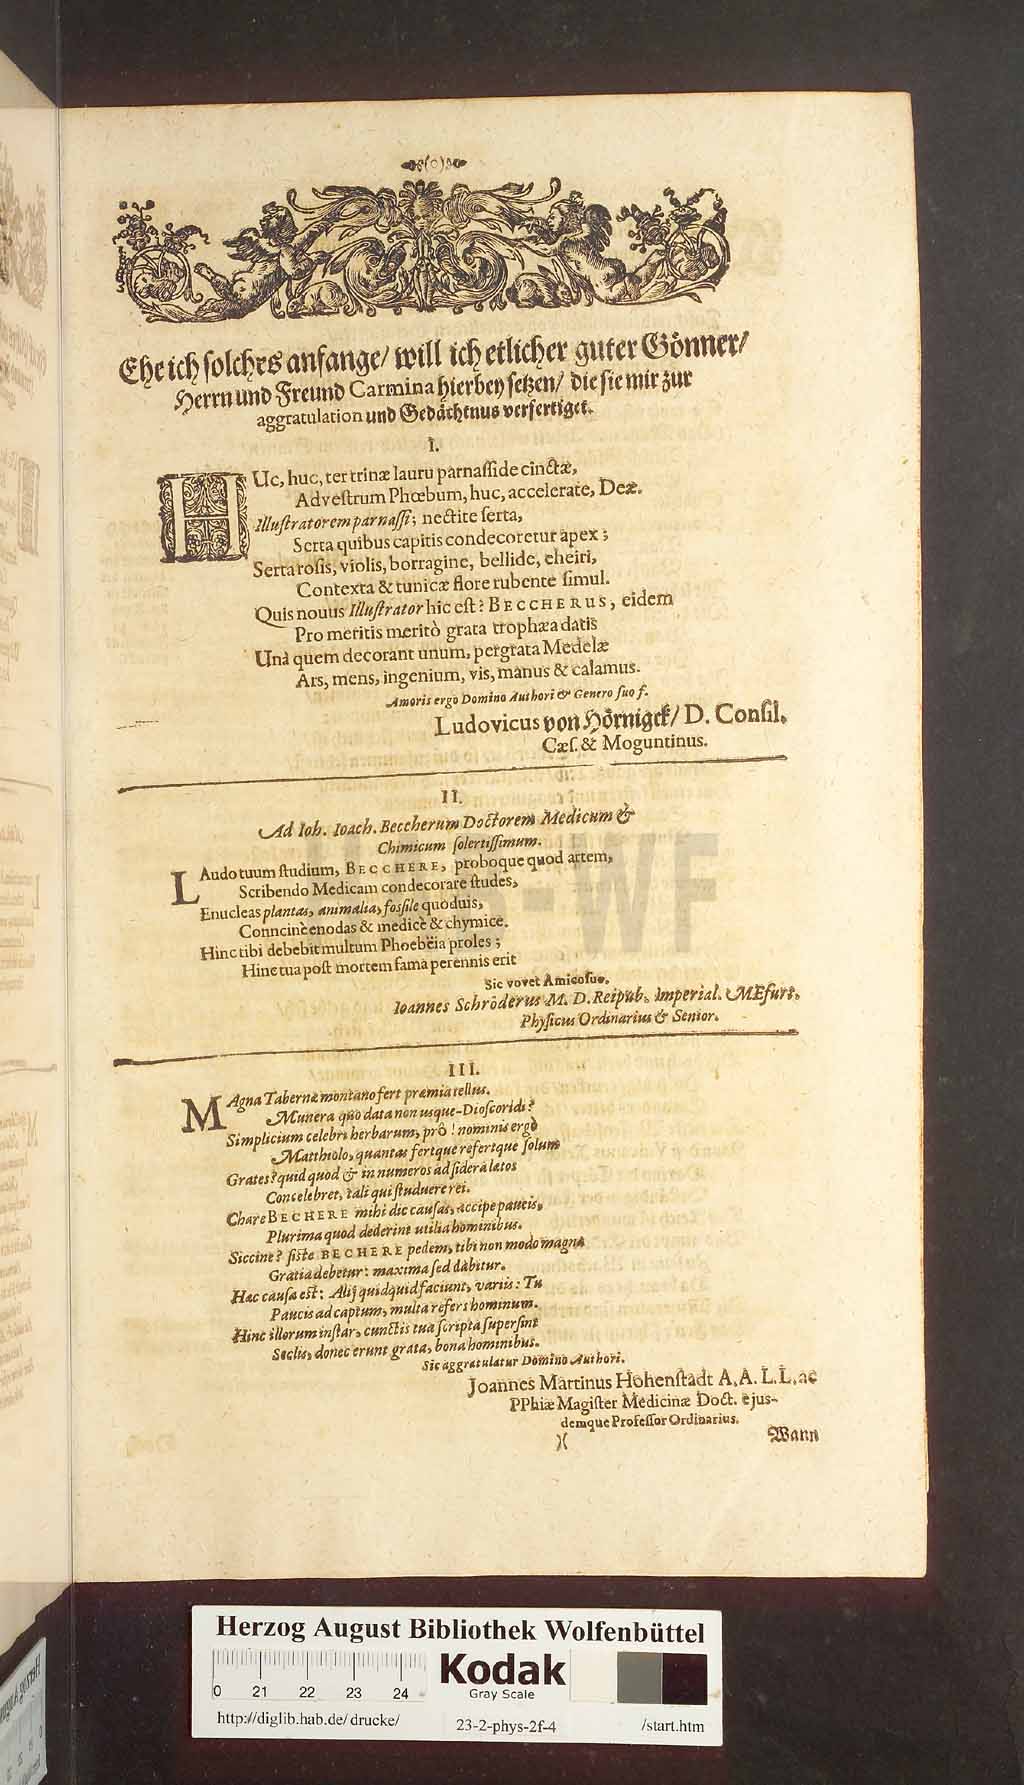 (o)
Ehe ich solches anfange/ will ich etlicher guter Gönner/
Herrn und Freund Carmina hierbey setzen/ die sie mir zur
aggratulation und Gedächtnus verfertiget.
I.
HUc, huc, ter trinæ lauru parnasside cinctæ,
Ad vestrum Phœbum, huc, accelerate, Deæ.
Illustratorem parnassi; nectite serta,
Serta quibus capitis condecoretur apex;
Serta rosis, violis, borragine, bellide, cheiri,
Contexta & tunicæ flore rubente simul.
Quis nouus Illustrator hic est? BECCHERUS, eidem
Pro meritis meritò grata trophæa datis
Unà quem decorant unum, pergrata Medelæ
Ars, mens, ingenium, vis, manus & calamus.
Amoris ergo Domino Authori & Genero suo f.
Ludovicus von Hörnigck/ D. Consil.
Cæs. & Moguntinus.
II.
Ad Ioh. Ioach. Beccherum Doctorem Medicum &
Chimicum solertissimum.
LAudo tuum studium, BECCHERE, proboque quod artem,
Scribendo Medicam condecorare studes,
Enucleas plantas, animalia, fossile quoduis,
Conncinè enodas & medicè & chymice.
Hinc tibi debebit multum Phoebëia proles;
Hinc tua post mortem fama perennis erit
Sic vovet Amico suo.
Ioannes Schröderus M. D. Reipub. Imperial. MEfurt.
Physicus Ordinarius & Senior.
III.
MAgna Tabernæ montano fert præmia tellus.
Munera quò data non usque-Dioscoridi?
Simplicium celebri herbarum, prô! nominis ergò
Matthiolo, quantas fertque refertque solum
Grates? quid quod & in numeros ad sidera latos
Concelebret, tali qui studuere rei.
Chare BECHERE mihi dic causas, accipe paucis,
Plurima quod dederint utilia hominibus.
Siccine? siste BECHERE pedem, tibi non modo magna
Gratia debetur: maxima sed dabitur.
Hæc causa est: Alij quidquid faciunt, variis: Tu
Paucis ad captum, multa refers hominum.
Hinc illorum instar, cunctis tua scripta supersint
Seclis, donec erunt grata, bona hominibus.
Sic aggratulatur Domino Authori.
Joannes Martinus Hohenstadt A. A. L. L. ac
PPhiæ Magister Medicinæ Doct. ejus-
demque Professor Ordinarius.
)( Wann
HAB-WF
Herzog August Bibliothek Wolfenbüttel
Kodak
Gray Scale
0 21 22 23 24
http://diglib.hab.de/drucke/ 23-2-phys-2f-4 /start.htm